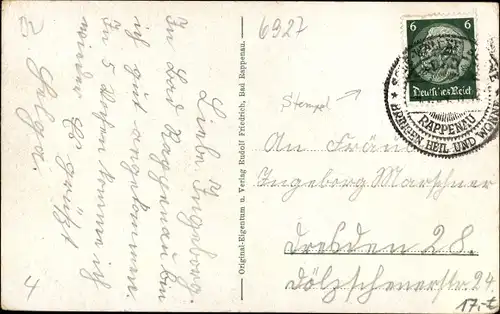 Liebe Ingeborg.
In Bad Rappenau bin
ich gut angekommen.
In 5 Wochen komme ich
wieder. Es grüßt
Helga.
4
Original-Eigentum u. Verlag Rudolf Friedrich, Bad Rappenau.
6927
Stempel
6
Deutsches Reich
RAPPENAU
BRINGEN HEIL UND
An Fräul
Ingeborg Marschner
Dresden 28.
Dölzschenerstr. 24
17.-€